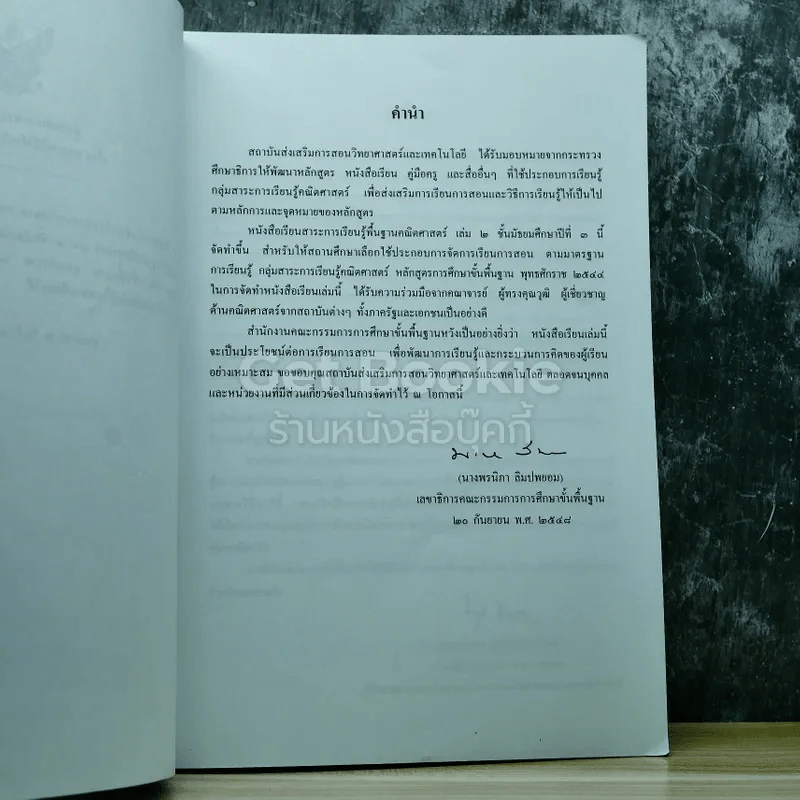 คำนำ
สถาบันส่งเสริมการสอนวิทยาศาสตร์และเทคโนโลยี ได้รับมอบหมายจากกระทรวง
ศึกษาธิการให้พัฒนาหลักสูตร หนังสือเรียน คู่มือครู และสื่ออื่นๆ ที่ใช้ประกอบการเรียนรู้
กลุ่มสาระการเรียนรู้คณิตศาสตร์ เพื่อส่งเสริมการเรียนการสอนและวิธีการเรียนรู้ให้เป็นไป
ตามหลักการและจุดหมายของหลักสูตร
หนังสือเรียนสาระการเรียนรู้พื้นฐานคณิตศาสตร์ เล่ม ๒ ชั้นมัธยมศึกษาปีที่ ๓ นี้
จัดทำขึ้น สำหรับให้สถานศึกษาเลือกใช้ประกอบการจัดการเรียนการสอน ตามมาตรฐาน
การเรียนรู้ กลุ่มสาระการเรียนรู้คณิตศาสตร์ หลักสูตรการศึกษาขั้นพื้นฐาน พุทธศักราช ๒๕๔๔
ในการจัดทำหนังสือเรียนเล่มนี้ ได้รับความร่วมมือจากคณาจารย์ ผู้ทรงคุณวุฒิ ผู้เชี่ยวชาญ
ด้านคณิตศาสตร์จากสถาบันต่างๆ ทั้งภาครัฐและเอกชนเป็นอย่างดี
สำนักงานคณะกรรมการการศึกษาขั้นพื้นฐานหวังเป็นอย่างยิ่งว่า หนังสือเรียนเล่มนี้
จะเป็นประโยชน์ต่อการเรียนการสอน เพื่อพัฒนาการเรียนรู้และกระบวนการคิดของผู้เรียน
อย่างเหมาะสม ขอขอบคุณสถาบันส่งเสริมการสอนวิทยาศาสตร์และเทคโนโลยี ตลอดจนบุคคล
และหน่วยงานที่มีส่วนเกี่ยวข้องในการจัดทำไว้ ณ โอกาสนี้
Get Bookie
ร้านหนังสือบุ๊คกี้
(นางพรนิภา ลิมปพยอม)
เลขาธิการคณะกรรมการการศึกษาขั้นพื้นฐาน
๒๐ กันยายน พ.ศ. ๒๕๔๘